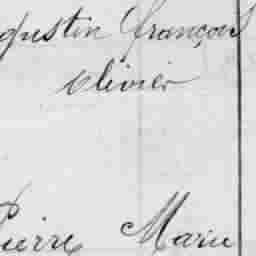 gustin françois
Olivier
Pierre Marie